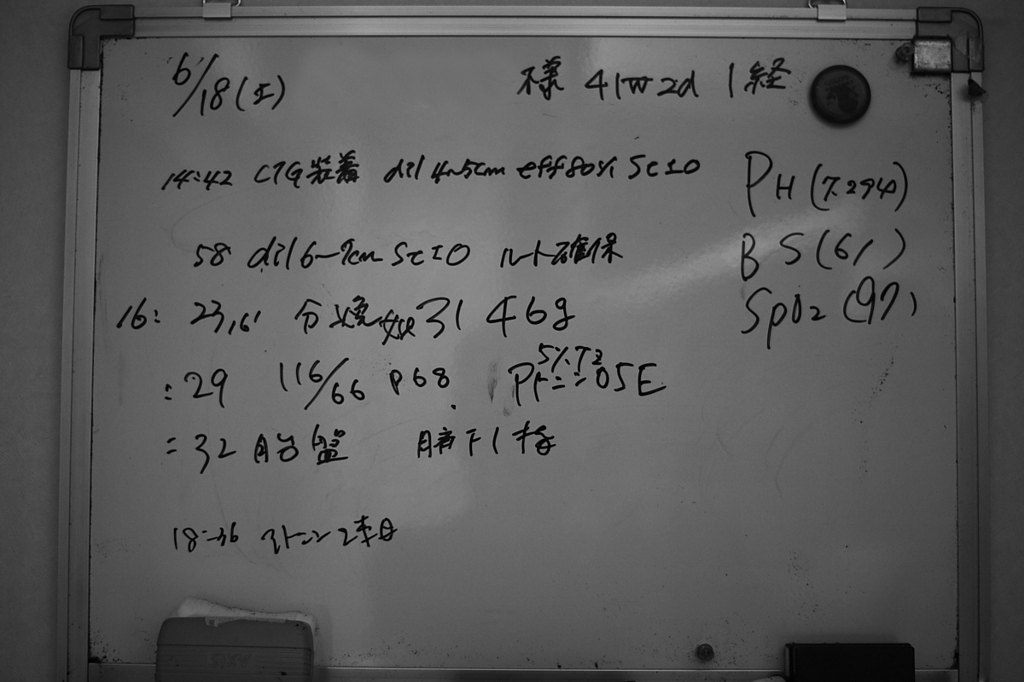 6/18(土) 様 41w2d 1経
14:42 CTG装着 dil 4~5cm eff80% Sc±0
58 dil 6~7cm Sc±0 ルート確保
16: 23,16' 分娩 3146g
:29 116/66 P68
5%TZ
:32 胎盤 臍下1指
18:36 2本目
PH(7.294)
BS(61)
SpO2(97)